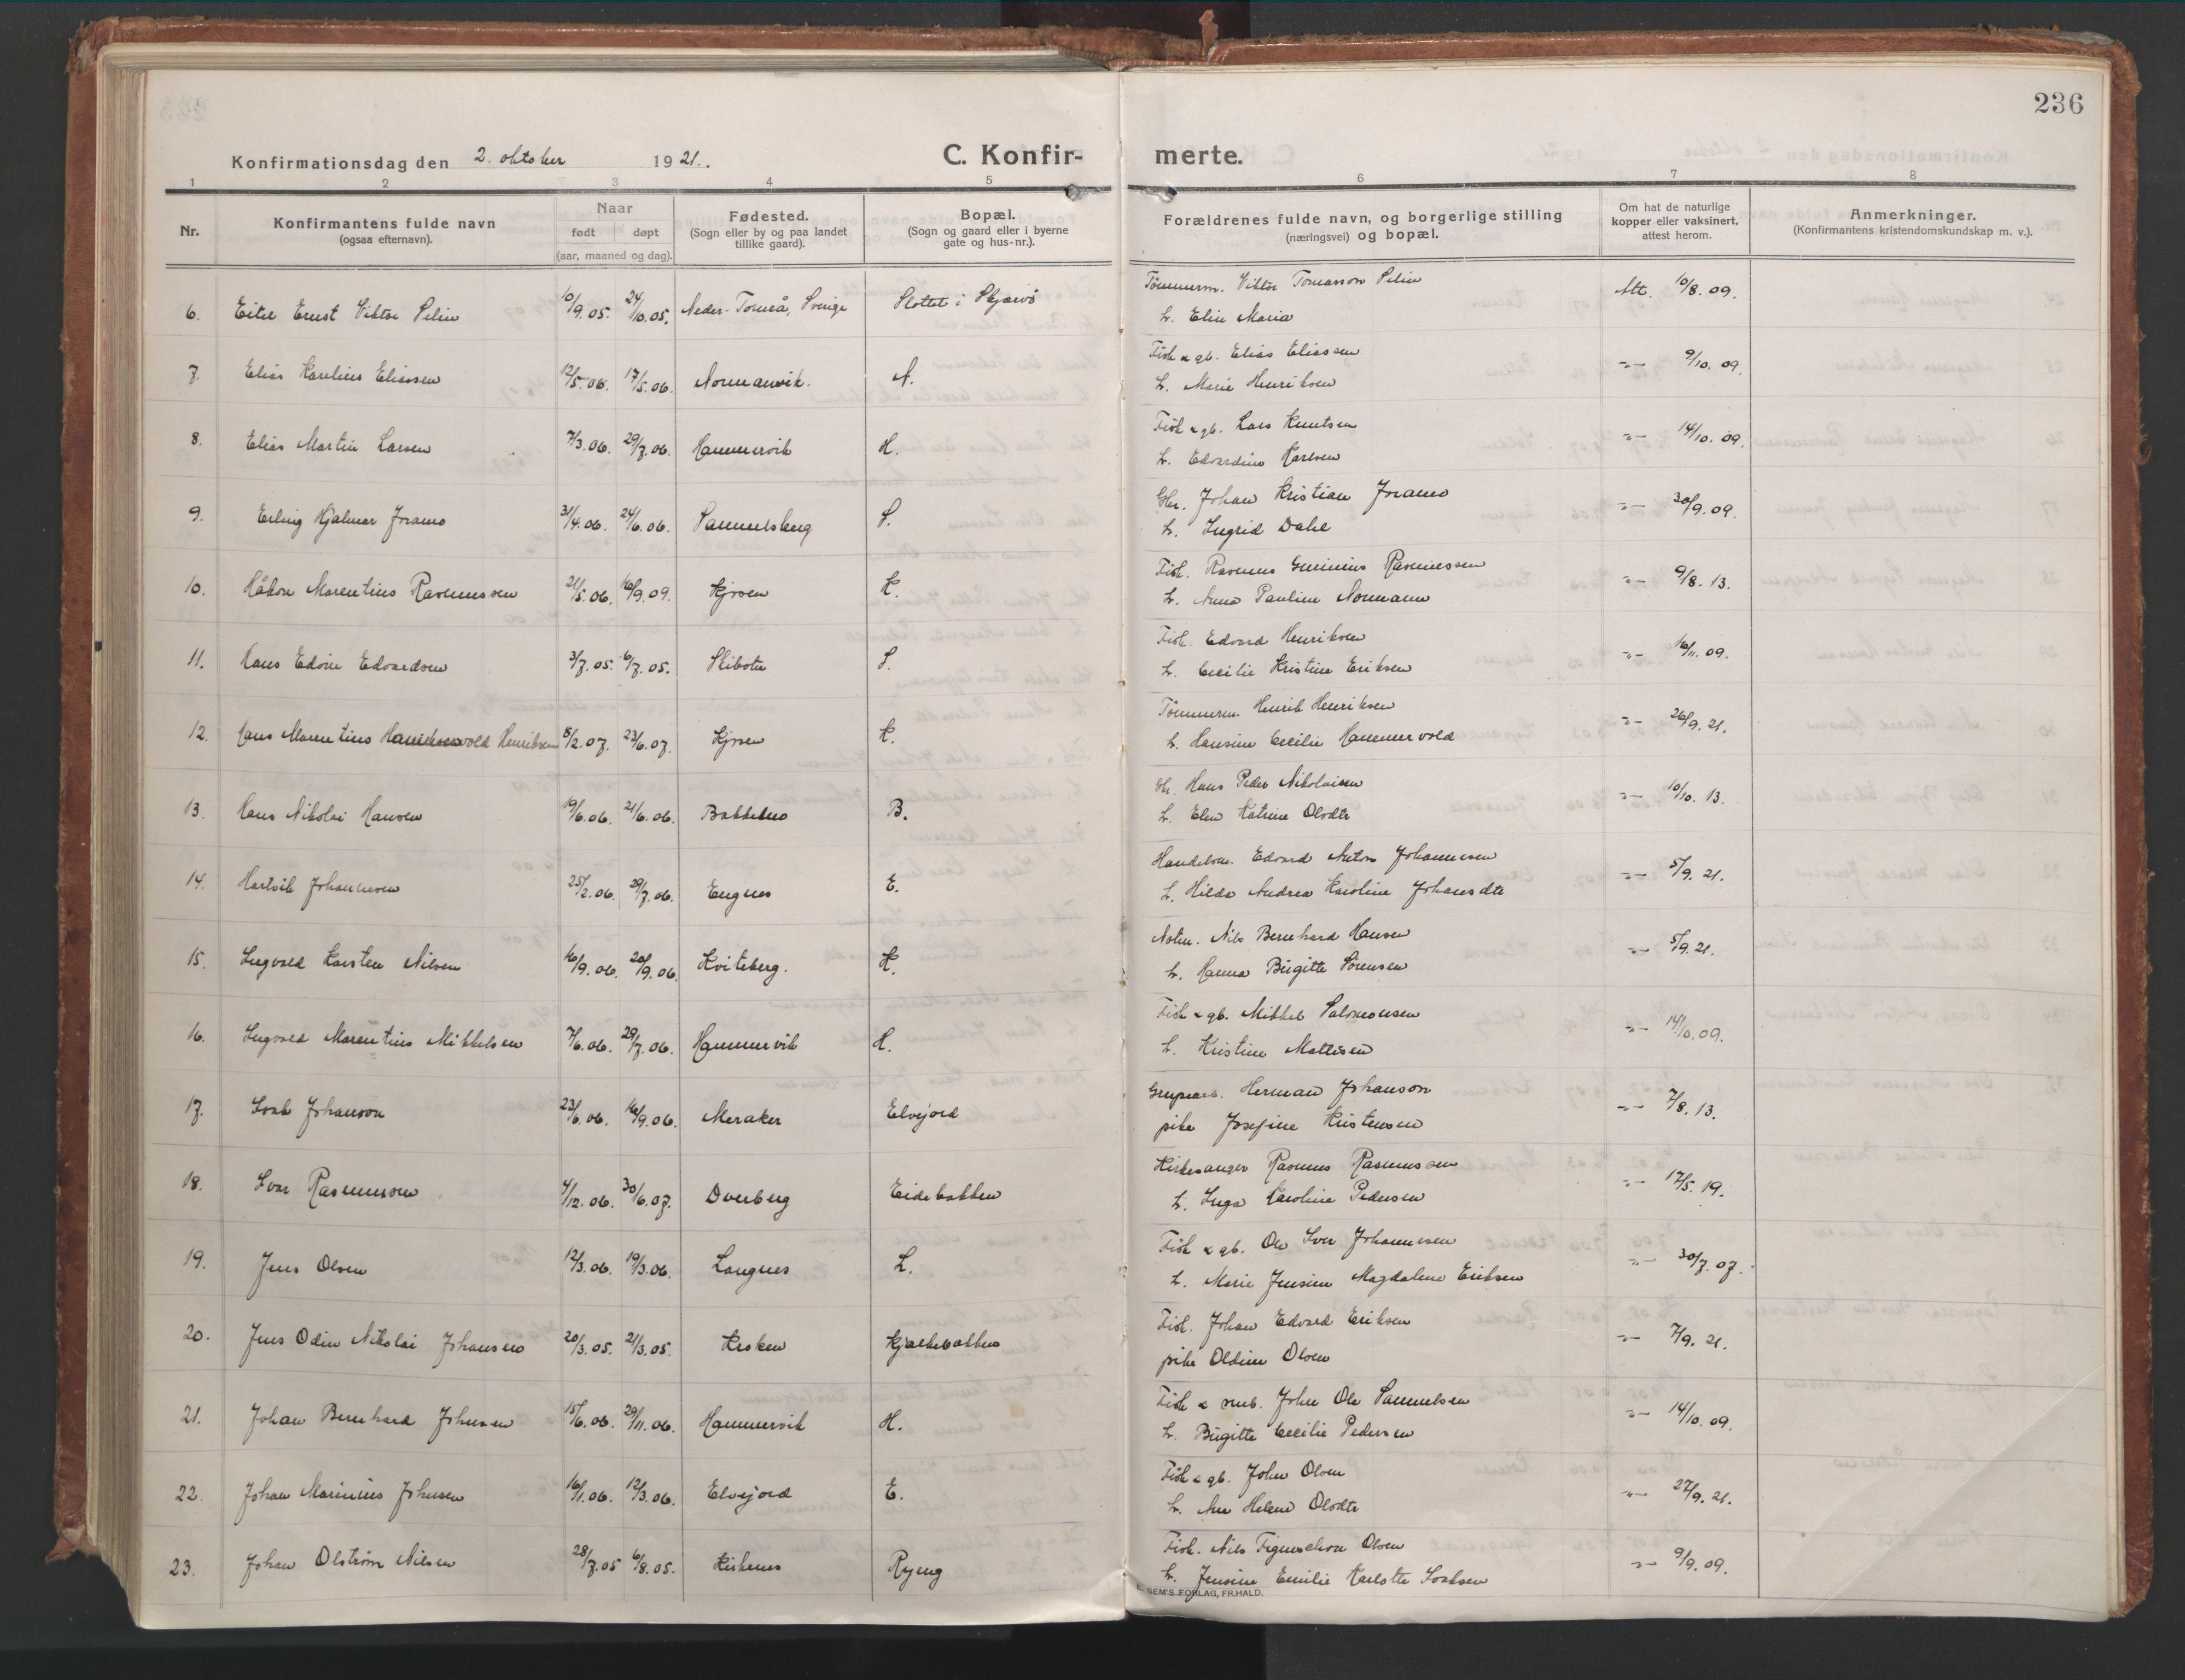 236
Konfirmationsdag den 2. oktober 1921.
C. Konfir- merte.
1 2 3 4 5 6 7 8
Nr.
Konfirmantens fulde navn
(ogsaa efternavn).
Naar
født døpt
(aar, maaned og dag).
Fødested.
(Sogn eller by og paa landet
tillike gaard).
Bopæl.
(Sogn og gaard eller i byerne
gate og hus-nr.).
Forældrenes fulde navn, og borgerlige stilling
(næringsvei) og bopæl.
Om hat de naturlige
kopper eller vaksinert,
attest herom.
Anmerkninger.
(Konfirmantens kristendomskundskap m. v.).
Tømmerm. Viktor Tomasson Selin
6. Eitel Ernst Viktor Selin 10/9.05. 24/10.05. Neder-Torneå, Sverige Slottet i Skjervø Att. 10/8.09.
h. Elin Maria
Fisk. & gb. Elias Eliassen
7. Elias Karelius Eliassen 12/5.06. 17/5.06. Normanvik. N. -"- 9/10.09.
h. Marie Henriksen
Fisk & gb. Lars Knutsen
8. Elias Martin Larsen 7/3.06. 29/7.06. Hammervik H. -"- 14/10.09.
h. Edvardine Karlsen
Gbr. Johan Kristian Joramo
9. Erling Hjalmar Joramo 31/4.06. 24/6.06. Samuelsberg S. -"- 30/9.09.
h. Ingrid Dahl
Fisk. Rasmus Gurinius Rasmussen
10. Håkon Marentius Rasmussen 21/5.06. 16/9.09. Kjosen K. -"- 9/8.13.
h. Anna Pauline Normann
Fisk. Edvard Henriksen
11. Hans Edvin Edvardsen 3/7.05. 6/7.05. Skibotn S. -"- 16/11.09.
h. Cecilie Kristine Eriksen
Tømmerm. Henrik Henriksen
12. Hans Marentius Hammervold Henriksen 5/2.07. 23/6.07. Kjosen K. -"- 26/9.21.
h. Hansine Cecilie Hammervold
Hans Peder Nikolaisen
13. Hans Nikolai Hansen 19/6.06. 21/6.06. Bakkeno B. -"- 10/10.13.
h. Elen Katrine Olsdtr
Handelsm. Edvard Anton Johannesen
14. Hartvik Johannesen 25/2.06. 29/7.06. Engnes E. -"- 5/9.21.
h. Hilda Andrea Karoline Johansdtr
Notm. Nils Bernhard Hansen
15. Ingvald Karsten Nilsen 16/9.06. 20/9.06. Kviteberg. K. -"- 5/9.21.
h. Hanna Birgitte Sørensen
Fisk & gb. Mikkel Salomonsen
16. Ingvald Marentius Mikkelsen 7/6.06. 29/7.06. Hammervik H. -"- 14/10.09.
h. Kristine Mattisen
Grupearb. Herman Johanson
17. Isak Johanson 23/6.06. 16/9.06. Meraker Elvejord -"- 7/8.13.
pike Josefine Kristensen
Kirkesanger Rasmus Rasmussen
18. Ivar Rasmussen 4/12.06. 30/6.07. Dverberg Eidebakken -"- 17/5.19.
h. Inga Karoline Pedersen
Fisk & gb. Ole Iver Johannesen
19. Jens Olsen 12/3.06. 19/3.06. Langnes L. -"- 30/7.07.
h. Marie Jensine Magdalena Eriksen
Fisk. Johan Edvard Eriksen
20. Jens Odin Nikolai Johansen 20/3.05. 21/3.05. Kesken Kjækkebakken -"- 7/9.21.
pike Oldine Olsen
Fisk & smb. John Ole Samuelsen
21. Johan Bernhard Johnsen 15/6.06. 29/11.06. Hammervik H. -"- 14/10.09.
h. Birgitte Cecilie Pedersen
Fisk & gb. John Olsen
22. Johan Marinius Johnsen 16/1.06. 12/3.06. Elvejord E. -"- 27/9.21.
h. Ane Helene Olsdtr
Fisk. Nils Figenschou Olsen
23. Johan Olstrøm Nilsen 28/7.05 6/8.05. Kirkenes Ryeng -"- 9/9.09.
h. Jensine Emilie Karlotte Isaksen
E. SEM'S FORLAG, FR.HALD.